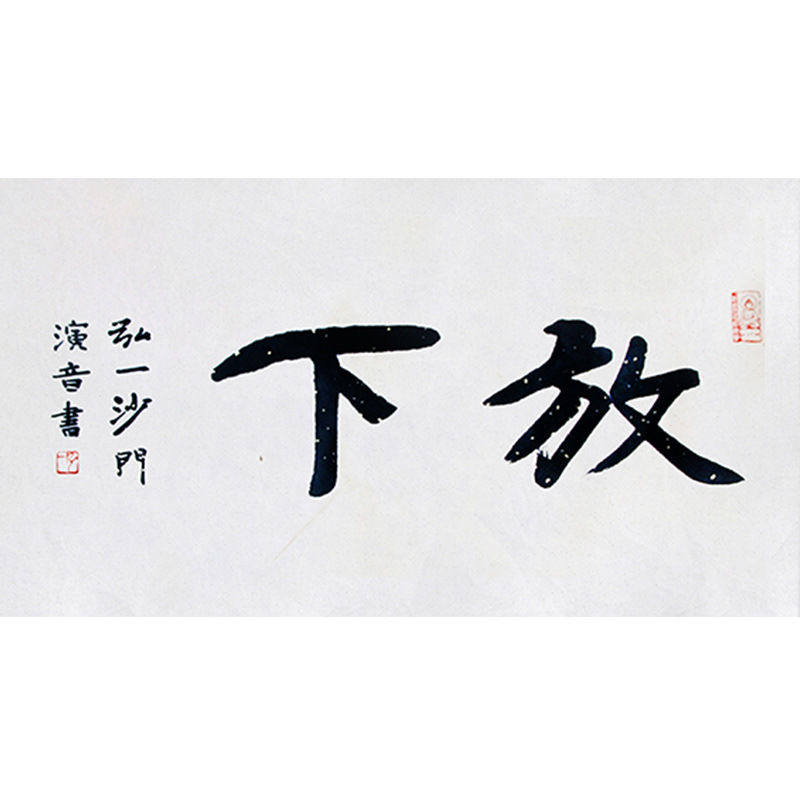 放下
弘一沙門
演音書